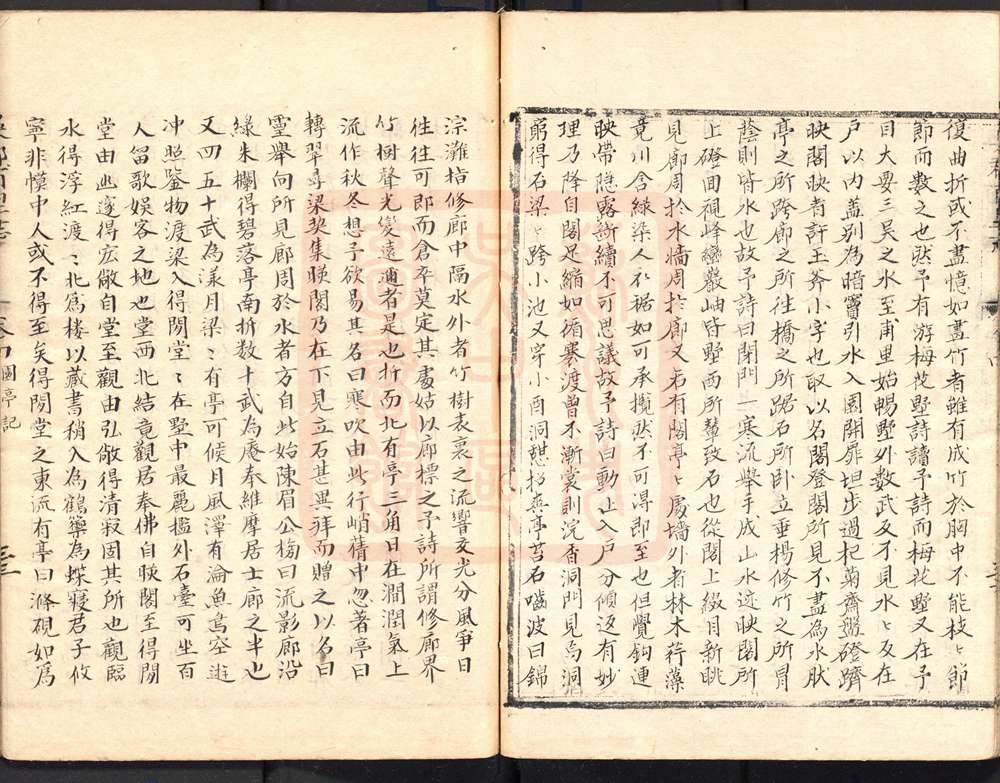 復曲折或不盡憶如畫竹者雖有成竹於胸中不能枝〻節
節而數之也然予有游梅花墅詩讀予詩而梅花墅又在予
目大要三吳之水至甫里始暢墅外數武又不見水〻反在
戶以內蓋別為暗竇引水入園開扉坦步過杞菊齋盤磴躋
映閣映者許玉斧小字也取以名閣登閣所見不盡為水狀
亭之所跨廊之所往橋之所踞石所臥立垂楊修竹之所冒
蔭則皆水也故予詩曰閉門一寒流舉手成山水跡映閣所
上磴回視峰巒巖岫皆墅西所輦致石也從閣上綴目新眺
見廊周扵水墻周扵廊又若有閣亭〻處墻外者林木荇藻
竟川含綠染人衣裾如可承攬然不可得即至也但覺鈎連
映帶隱露斷續不可思議故予詩曰動止入戶分傾返有妙
理乃降自閣足縮如循褰渡曾不漸裳則浣香洞門見焉洞
窮得石梁〻跨小池又穿小酉洞憩招爽亭苔石嚙波曰錦
淙灘指修廊中隔水外者竹樹表裏之流響交光分風爭日
徃徃可即而倉卒莫定其處姑以廊標之予詩所謂修廊界
竹樹聲光變遠邇者是也折而北有亭三角曰在澗潤氣上
流作秋冬想予欲易其名曰寒吹由此行峭蒨中忽著亭曰
轉翠尋梁契集暎閣乃在下見立石甚異拜而贈之以名曰
靈舉向所見廊周於水者方自此始陳眉公榜曰流影廊沿
綠朱欄得碧落亭南折數十武為庵奉維摩居士廊之半也
又四五十武為漾月梁〻有亭可候月風澤有淪魚鳥空逰
冲照鑒物渡梁入得閒堂〻在墅中最麗檻外石臺可坐百
人留歌娛客之地也堂西北結竟觀居奉佛自映閣至得閒
堂由幽邃得宏敞自堂至觀由弘敞得清寂固其所也觀臨
水得浮紅渡〻北為樓以藏書稍入為鶴籞為蝶寢君子攸
寧非幙中人或不得至矣得閒堂之東流有亭曰滌硯如為
園亭記